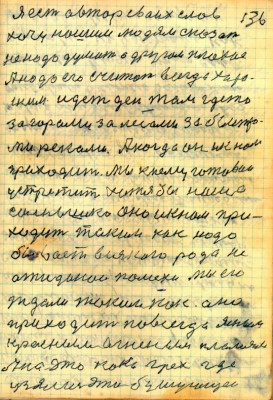 Я ест автор своих слов 136
хочу нашим людям сказат
не надо думат о другом плохие
А надо его считат всегда харо-
шим идет ден там где то
за горами за лесами за быстро-
ми реками. А когда он к нам
приходит. Мы к нему готовы
устретит хотя бы наше
солнышко оно к нам при-
ходит таким как надо
бывает всякого рода не
ожиданой помехи мы его
ждали таким как. а он
приходит повсегда яным
красным огненым пламям
А на это нока грех где
взялся это бушующей